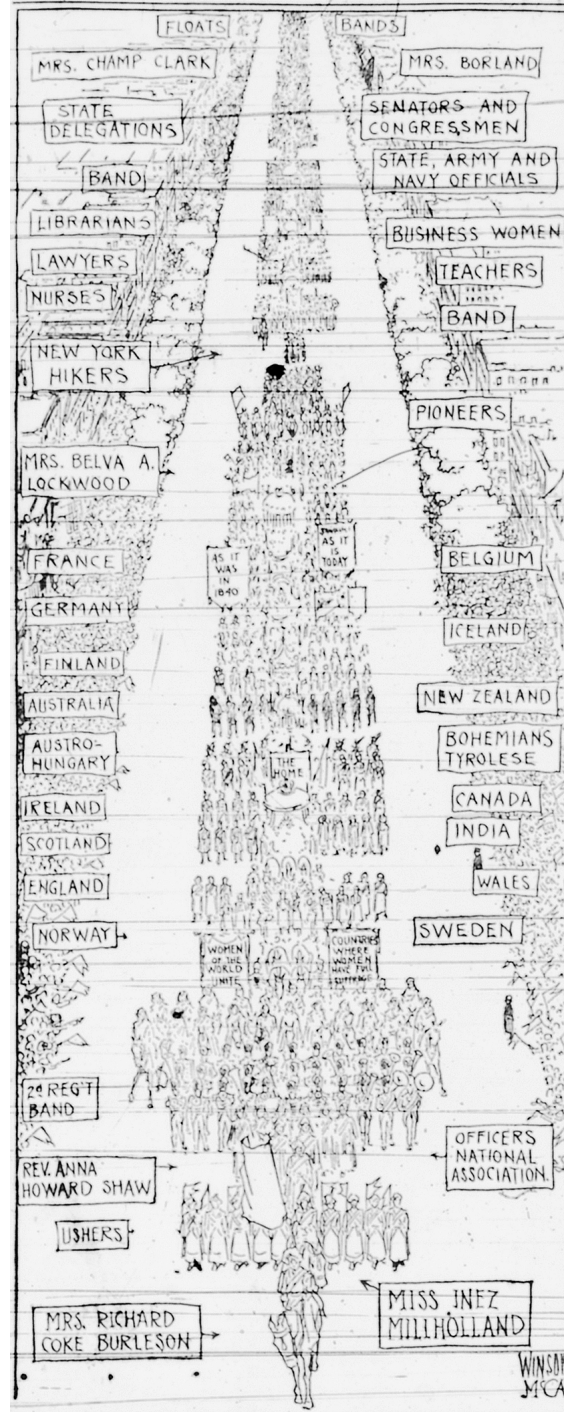 FLOATS
BANDS
MRS. CHAMP CLARK
MRS. BORLAND
STATE
DELEGATIONS
SENATORS AND
CONGRESSMEN
BAND
STATE, ARMY AND
NAVY OFFICIALS
LIBRARIANS
BUSINESS WOMEN
LAWYERS
TEACHERS
NURSES
BAND
NEW YORK
HIKERS
PIONEERS
MRS. BELVA A.
LOCKWOOD
AS IT
WAS
IN
1840
AS IT
IS
TODAY
FRANCE
BELGIUM
GERMANY
ICELAND
FINLAND
AUSTRALIA
NEW ZEALAND
AUSTRO-
HUNGARY
THE
HOME
BOHEMIANS
TYROLESE
IRELAND
CANADA
SCOTLAND
INDIA
ENGLAND
WALES
NORWAY
SWEDEN
WOMEN
OF THE
WORLD
UNITE
COUNTRIES
WHERE
WOMEN
HAVE FULL
SUFFRAGE
2d REG'T
BAND
OFFICERS
NATIONAL
ASSOCIATION.
REV. ANNA
HOWARD SHAW
USHERS
MISS INEZ
MILLHOLLAND
MRS. RICHARD
COKE BURLESON
WINSOR
McCA